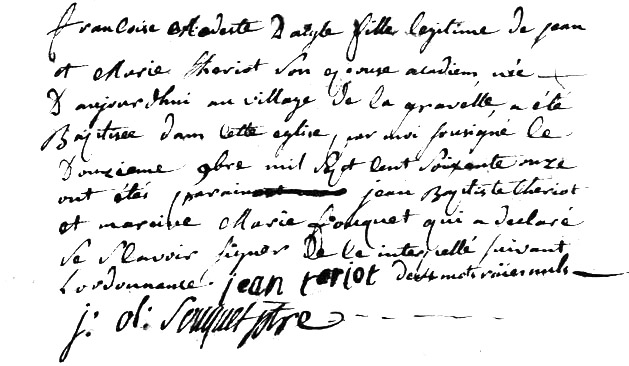 francoise Modeste Daigle fille legitime de jean
et Marie theriot Son epouse acadiens née
D'aujourdhui au village de la gravelle, a été
Baptisée dans cette eglise, par moi sousigné le
Douzieme 9bre mil sept cent soixante onze
ont étés parain jean Baptiste theriot
et maraine Marie fouquet qui a declaré
ne sçavoir signer de ce interpellé suivant
Lordonnance. jean teriot deux mots raiés nuls
j: d: fouquet ptre